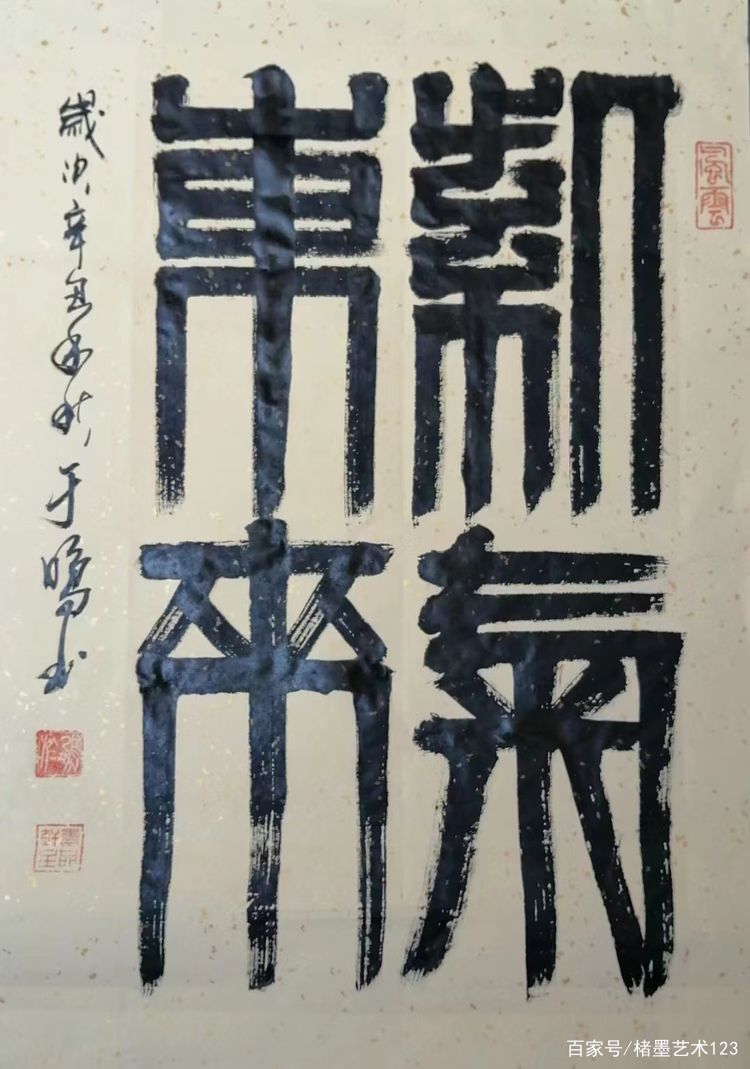 風雲
紫氣
東來
歲次辛丑秋于鳴书
百家号/楮墨艺术123